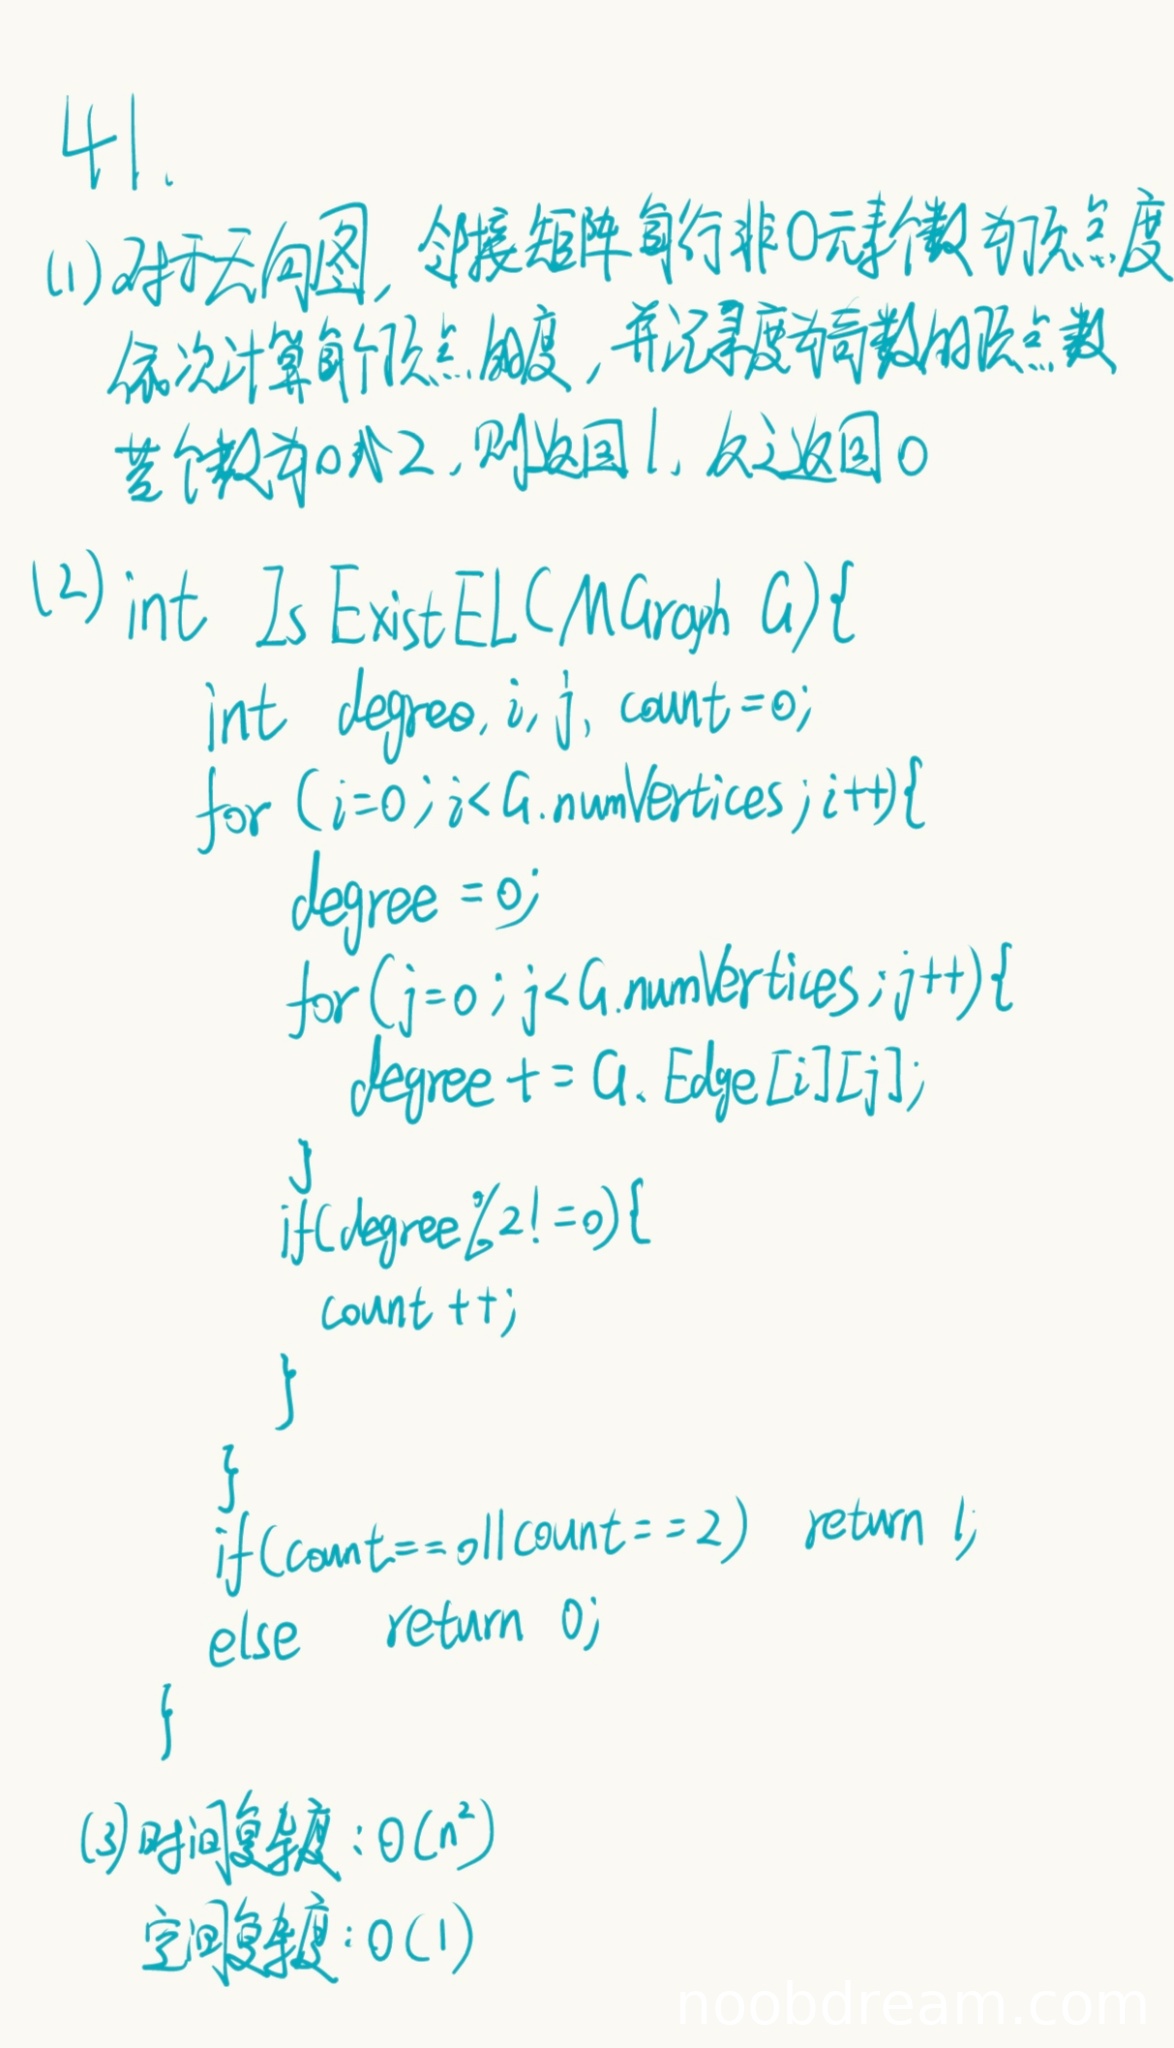 41.
(1)对于无向图,邻接矩阵每行非0元素个数为顶点度
依次计算每个顶点的度,并记录度为奇数的顶点数
若个数为0或2,则返回1,反之返回0
(2) int IsExistEL(MGraph G){
int degree, i, j, count=0;
for (i=0; i<G.numVertices; i++){
degree =0;
for(j=0; j<G.numVertices; j++){
degree += G.Edge[i][j];
}
if(degree%2!=0){
count ++;
}
}
if(count==0||count==2) return 1;
else return 0;
}
(3)时间复杂度:O(n²)
空间复杂度:O(1)
noobdream.com